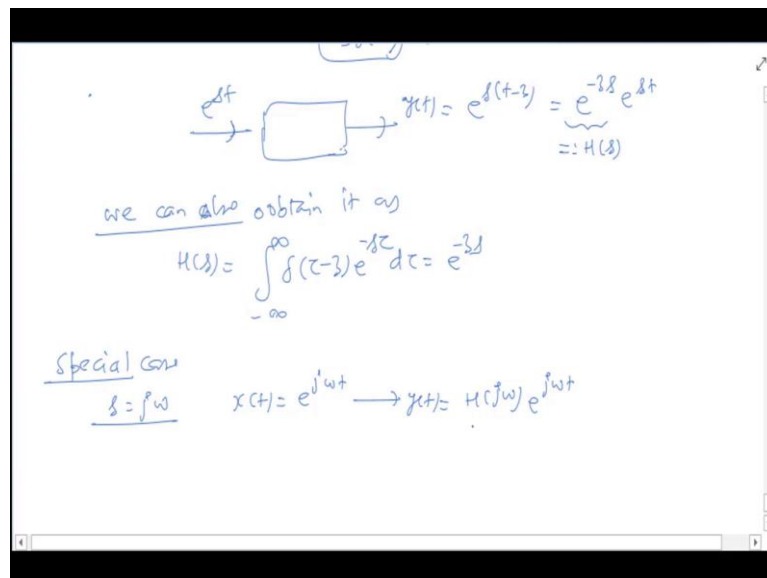 e^{st} → y(t) = e^{s(t-3)} = e^{-3s} e^{st}
=: H(s)
we can also oobtain it as
H(s) = ∫_{-∞}^{∞} δ(τ-3) e^{-sτ} dτ = e^{-3s}
Special case
s = jω x(t) = e^{jωt} → y(t) = H(jω) e^{jωt}